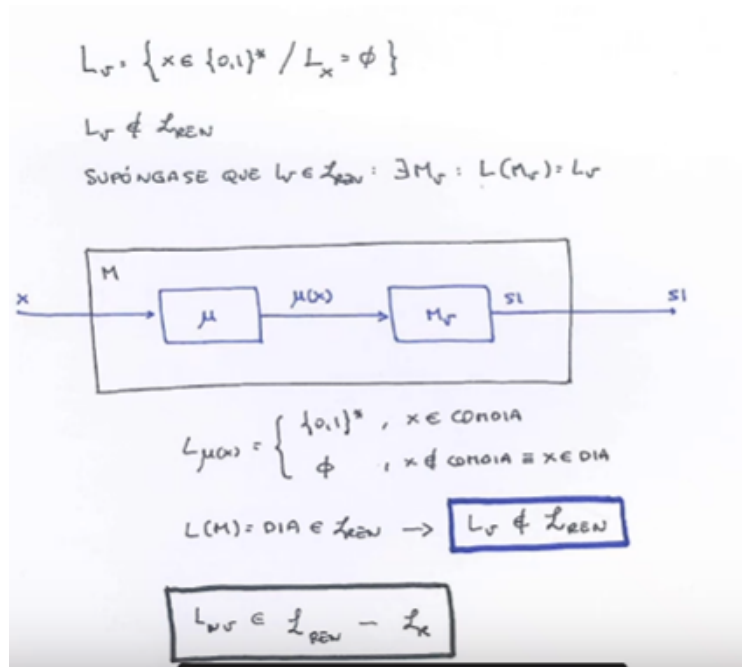 Lᵥ = {x ∈ {0,1}* / Lₓ = ∅}
Lᵥ ∉ ℒREN
SUPÓNGASE QUE Lᵥ ∈ ℒREN : ∃Mᵥ : L(Mᵥ) = Lᵥ
M
x μ μ(x) Mᵥ SI SI
Lμ(x) = { {0,1}* , x ∈ COMDIA
∅ , x ∉ COMDIA ≡ x ∈ DIA
L(M) = DIA ∈ ℒREN → Lᵥ ∉ ℒREN
LNV ∈ ℒREN − ℒR